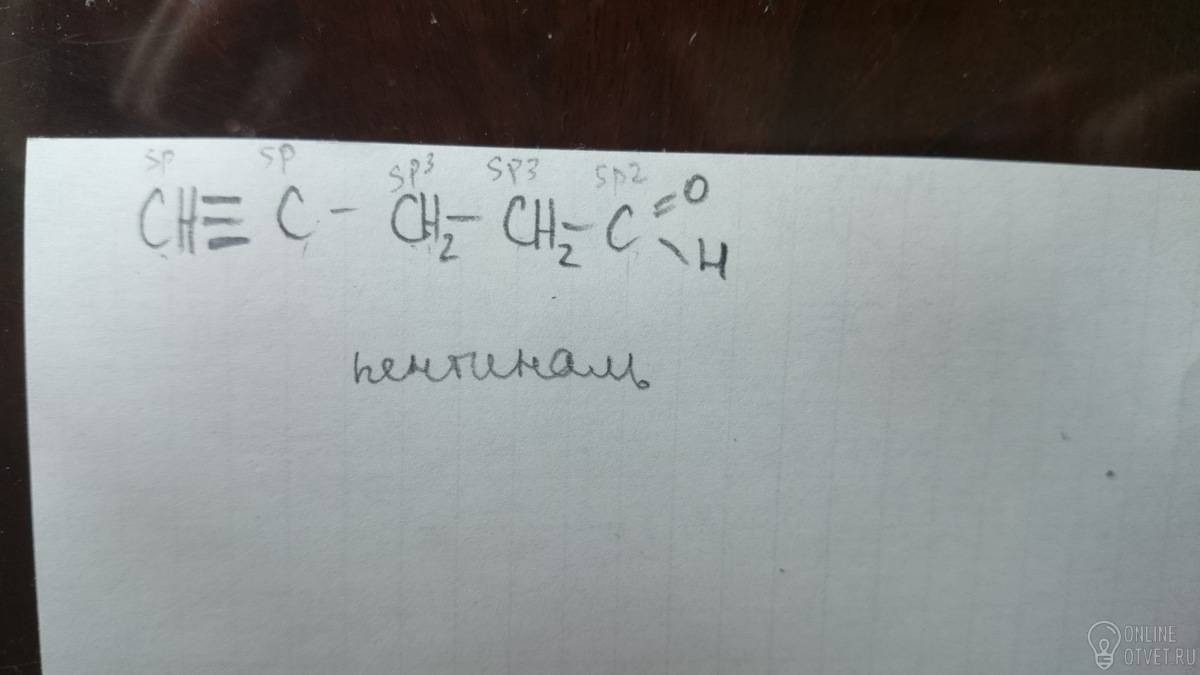 sp sp sp3 sp3 sp2
CH≡C-CH2-CH2-C=O
H
пентиналь
ONLINE
OTVET.RU